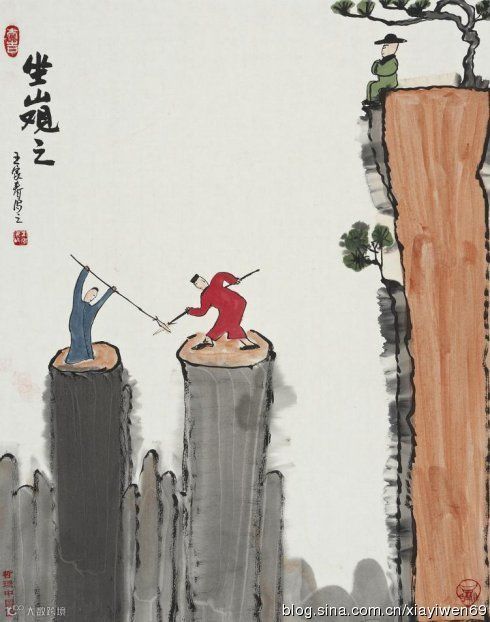 坐山观之
王家春写之
大数跨境
blog.sina.com.cn/xiayiwen69